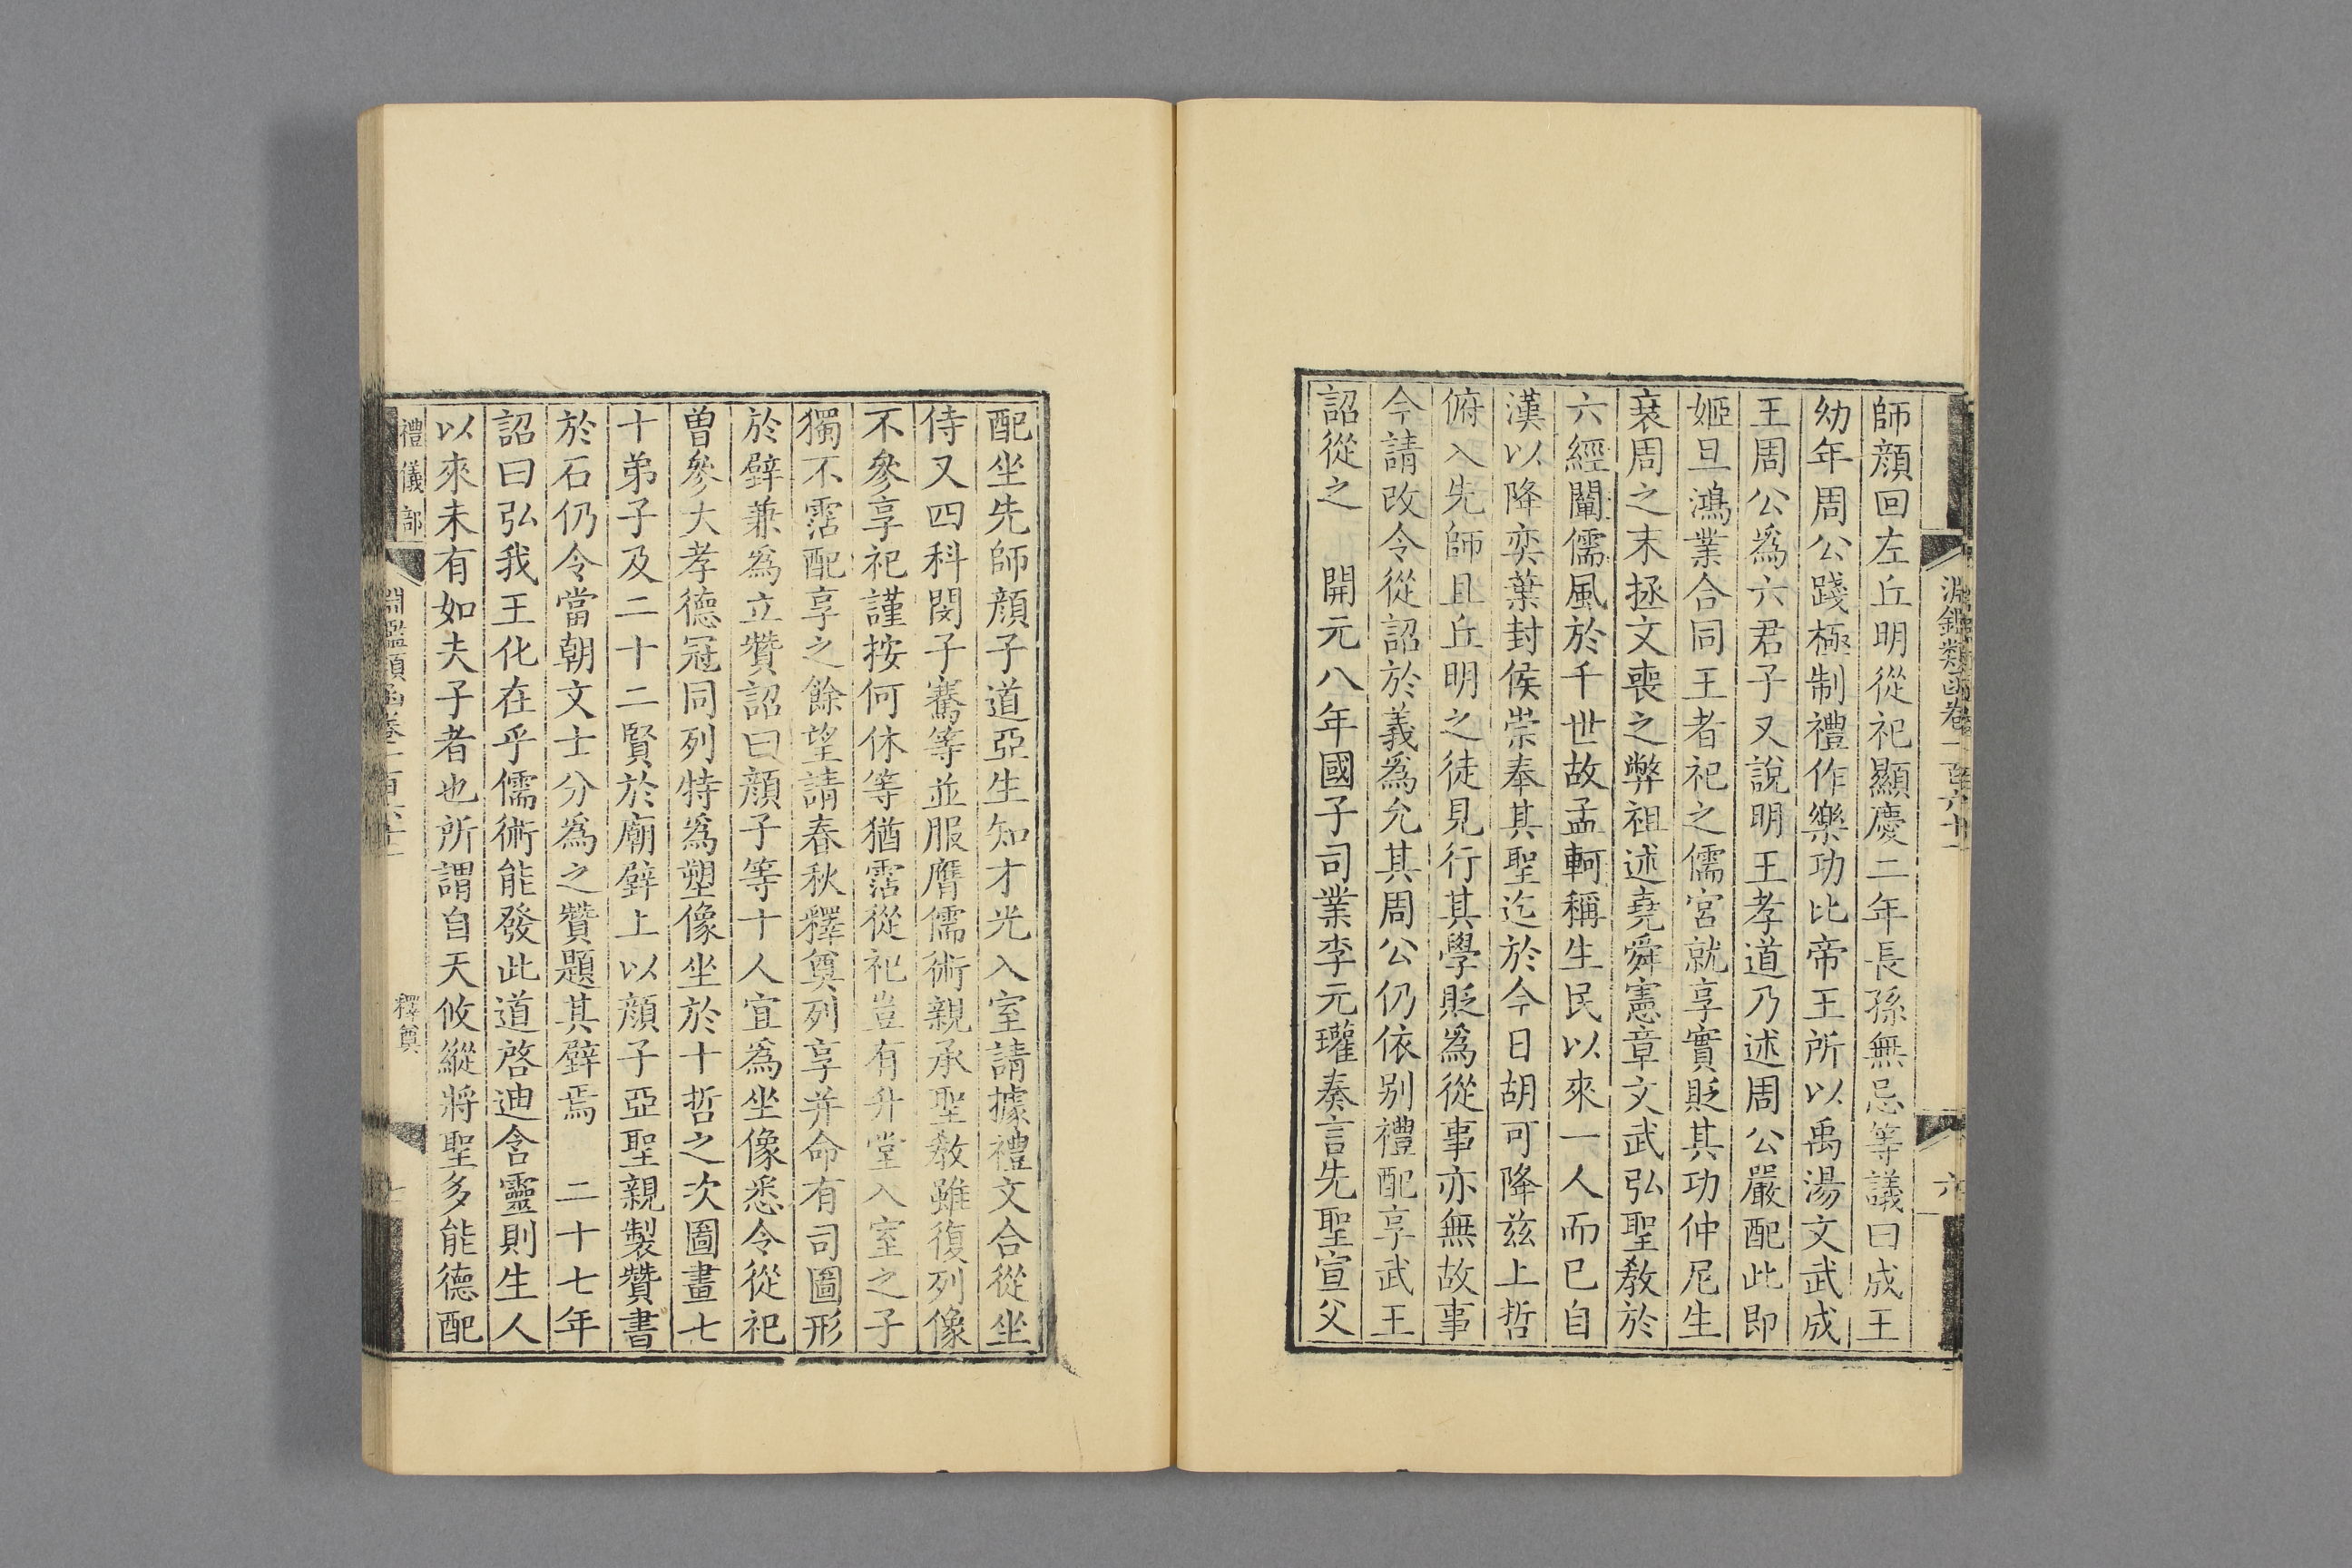 淵鑑類函卷一百六十一
六
師顔回左丘明從祀顯慶二年長孫無忌等議曰成王
幼年周公踐極制禮作樂功比帝王所以禹湯文武成
王周公爲六君子又說明王孝道乃述周公嚴配此即
姬旦鴻業合同王者祀之儒宮就享實貶其功仲尼生
衰周之末拯文喪之弊祖述堯舜憲章文武弘聖教於
六經闡儒風於千世故孟軻稱生民以來一人而已自
漢以降奕葉封侯崇奉其聖迄於今日胡可降茲上哲
俯入先師且丘明之徒見行其學貶爲從事亦無故事
今請改令從詔於義爲允其周公仍依别禮配享武王
詔從之　開元八年國子司業李元瓘奏言先聖宣父
配坐先師顔子道亞生知才光入室請據禮文合從坐
侍又四科閔子騫等並服膺儒術親承聖教雖復列像
不參享祀謹按何休等猶霑從祀豈有升堂入室之子
獨不霑配享之餘望請春秋釋奠列享并命有司圖形
於壁兼爲立贊詔曰顔子等十人宜爲坐像悉令從祀
曾參大孝德冠同列特爲塑像坐於十哲之次圖畫七
十弟子及二十二賢於廟壁上以顔子亞聖親製贊書
於石仍令當朝文士分爲之贊題其壁焉　二十七年
詔曰弘我王化在乎儒術能發此道啓迪含靈則生人
以來未有如夫子者也所謂自天攸縱將聖多能德配
禮儀部
釋奠
淵鑑類函卷一百六十一